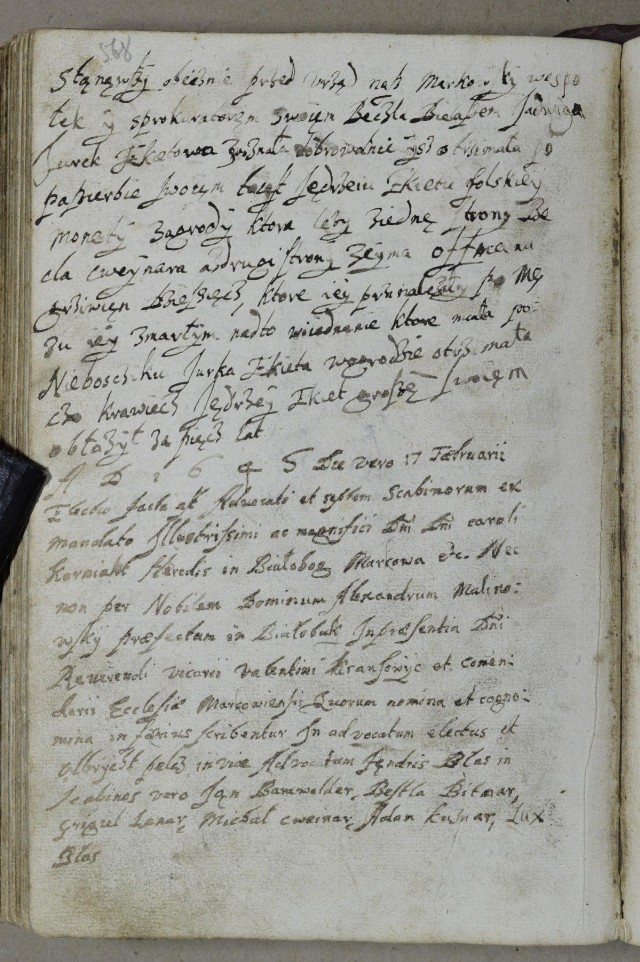 568
Stąnąwszy obecznie przed urząd nasz Markowsky wespo
łek y sprokuratorem swoym Beszla Bielaszem Jadwiga
Jurek Ekietowa zeznała dobrowolnie jsz otrzimała po
paszierbie swoiem tusz Jędrzeiu Ekietu polskiey
monety zagrody ktora leży ziednę strony Be
cla cweynara azdrugi strony Zeyma
grziwien ktore iey przinależały po Mę
zu iey zmarłym nadto wiednanie ktore miała po:
Niebosczyku Jurka Ekieta wogrodzie otrzimała
czo krawiecz Jędrzey Ekiet groszę swoiem
obłożył za pięcz lat
A D 1 6 4 5 Die vero 17 Februarii
Electio facta est Advocati et septem Scabinorum ex
mandato Illustrissimi ac magnifici Dni Dni caroli
Korniakt Heredis in Białoboq Marcowa etc. Nec
non per Nobilem Dominum Alexandrum Malino:
wsky præfectum in Białobok Inpræsentia Dni
Reverendi vicarii valentini et comen:
darii Ecclesiæ Marcowiensis Quorum nomina et cogno:
mina inferius scribentur In advocatum electus et
olbrycht pelcz inviæ Advocatum Jąndris Blas in
Scabinos vero Jąn Barnwalder, Bestla Bitmar,
Grigiel Lenar, Michał cweinar, Adam kusnar, Lux
Blas